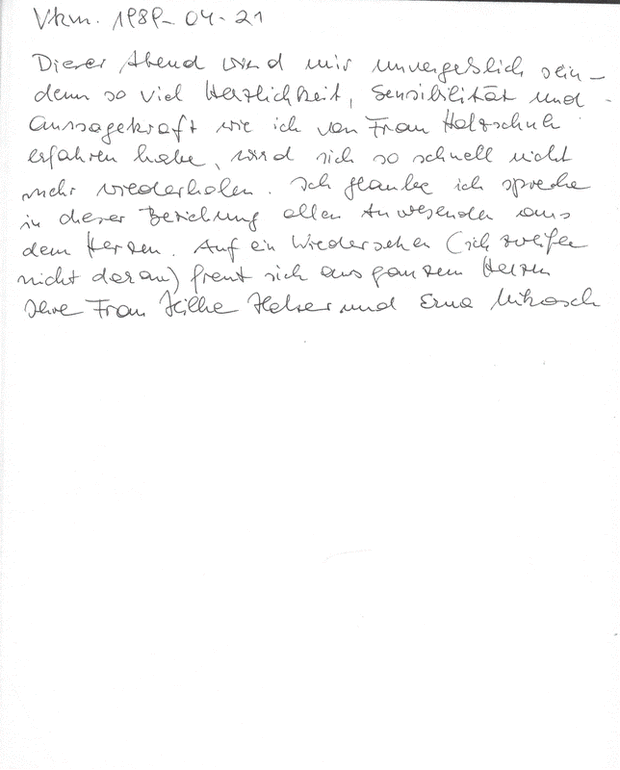 Vkm. 1989-04-21
Dieser Abend wird mir unvergeßlich sein –
denn so viel Herzlichkeit, Sensibilität und
Aussagekraft wie ich von Frau Holzschuh
erfahren habe, wird sich so schnell nicht
mehr wiederholen. Ich glaube ich spreche
in dieser Beziehung allen Anwesenden aus
dem Herzen. Auf ein Wiedersehen (ich zweifle
nicht daran) freut sich aus ganzem Herzen
Ihre Frau Helzer und Erna Mikosch